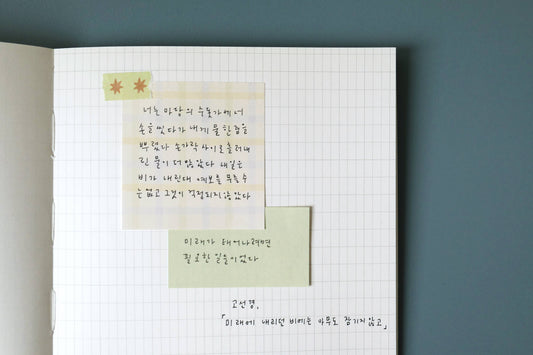 너는 마당의 수돗가에서
손을 씻다가 내게 물 한 줌을
뿌렸다 손가락 사이로 흘러내
린 물이 더 많았다 내일은
비가 내린대 예보를 멈출 수
는 없고 그것이 걱정되지 않았다
미래가 태어나려면
필요한 일들이었다
고선경,
「미래에 내리던 비에는 아무도 잠기지 않고」